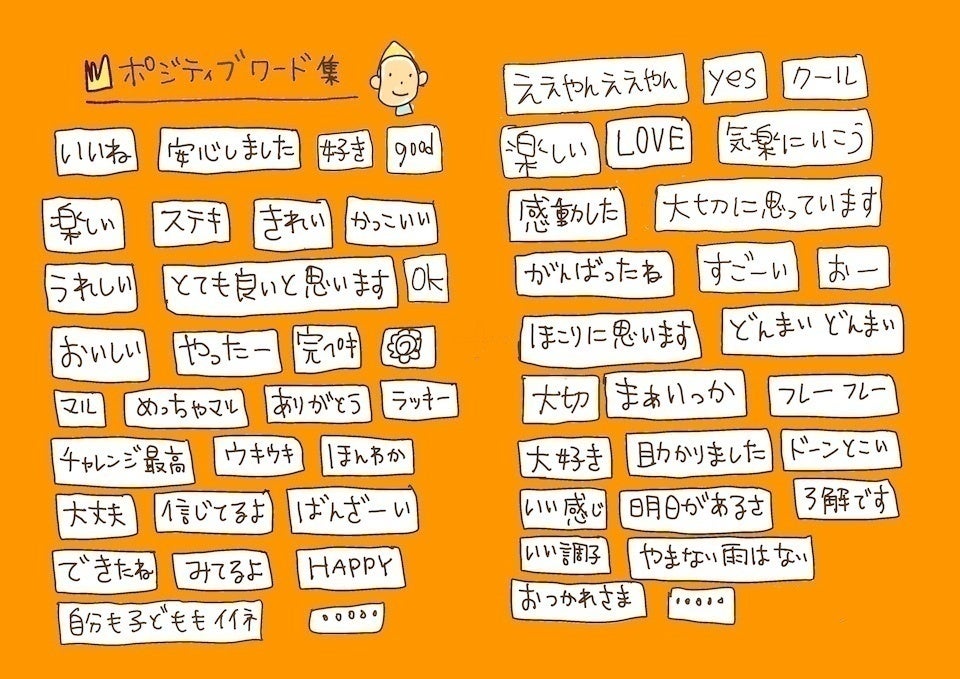 ポジティブワード集
いいね 安心しました 好き good
楽しい ステキ きれい かっこいい
うれしい とても良いと思います OK
おいしい やったー 完ペキ
マル めっちゃマル ありがとう ラッキー
チャレンジ最高 ウキウキ ほんわか
大丈夫 信じてるよ ばんざーい
できたね みてるよ HAPPY
自分も子どももイイネ ・・・・・
ええやんええやん yes クール
楽しい LOVE 気楽にいこう
感動した 大切に思っています
がんばったね すごーい おー
ほこりに思います どんまい どんまい
大切 まぁいっか フレーフレー
大好き 助かりました ドーンとこい
いい感じ 明日があるさ 了解です
いい調子 やまない雨はない
おつかれさま ・・・・・